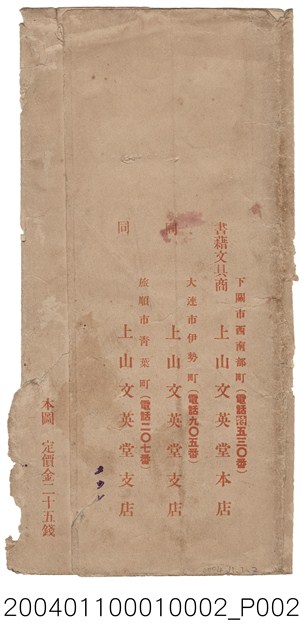 下關市西南部町(電話五三〇番)
書籍文具商 上山文英堂本店
大連市伊勢町(電話九〇五番)
同 上山文英堂支店
旅順市青葉町(電話二〇七番)
同 上山文英堂支店
本圖 定價金二十五錢
200401100010002_P002